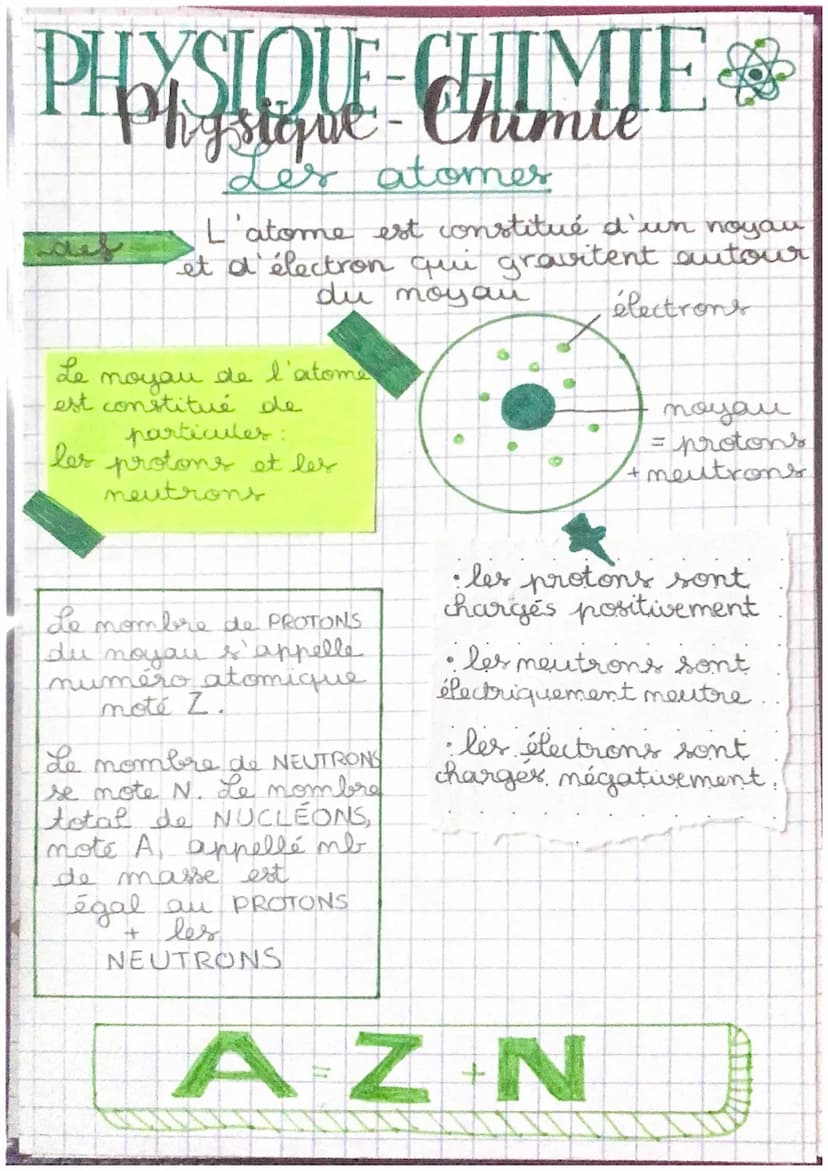 PHYSIQUE-CHIMIE
Physique - Chimie
Les atomes
def
L'atome est constitué d'un noyau
et d'électron qui gravitent autour
du noyau
électrons
Le noyau de l'atome
est constitué de
particules:
les protons et les
neutrons
noyau
= protons
+ neutrons
• les protons sont
chargés positivement
• les neutrons sont
électriquement neutre
• les électrons sont
chargés négativement.
Le nombre de PROTONS
du noyau s'appelle
numéro atomique
noté Z.
Le nombre de NEUTRONS
se note N. Le nombre
total de NUCLÉONS,
noté A, appellé nb
de masse est
égal au PROTONS
+ les
NEUTRONS
A = Z + N